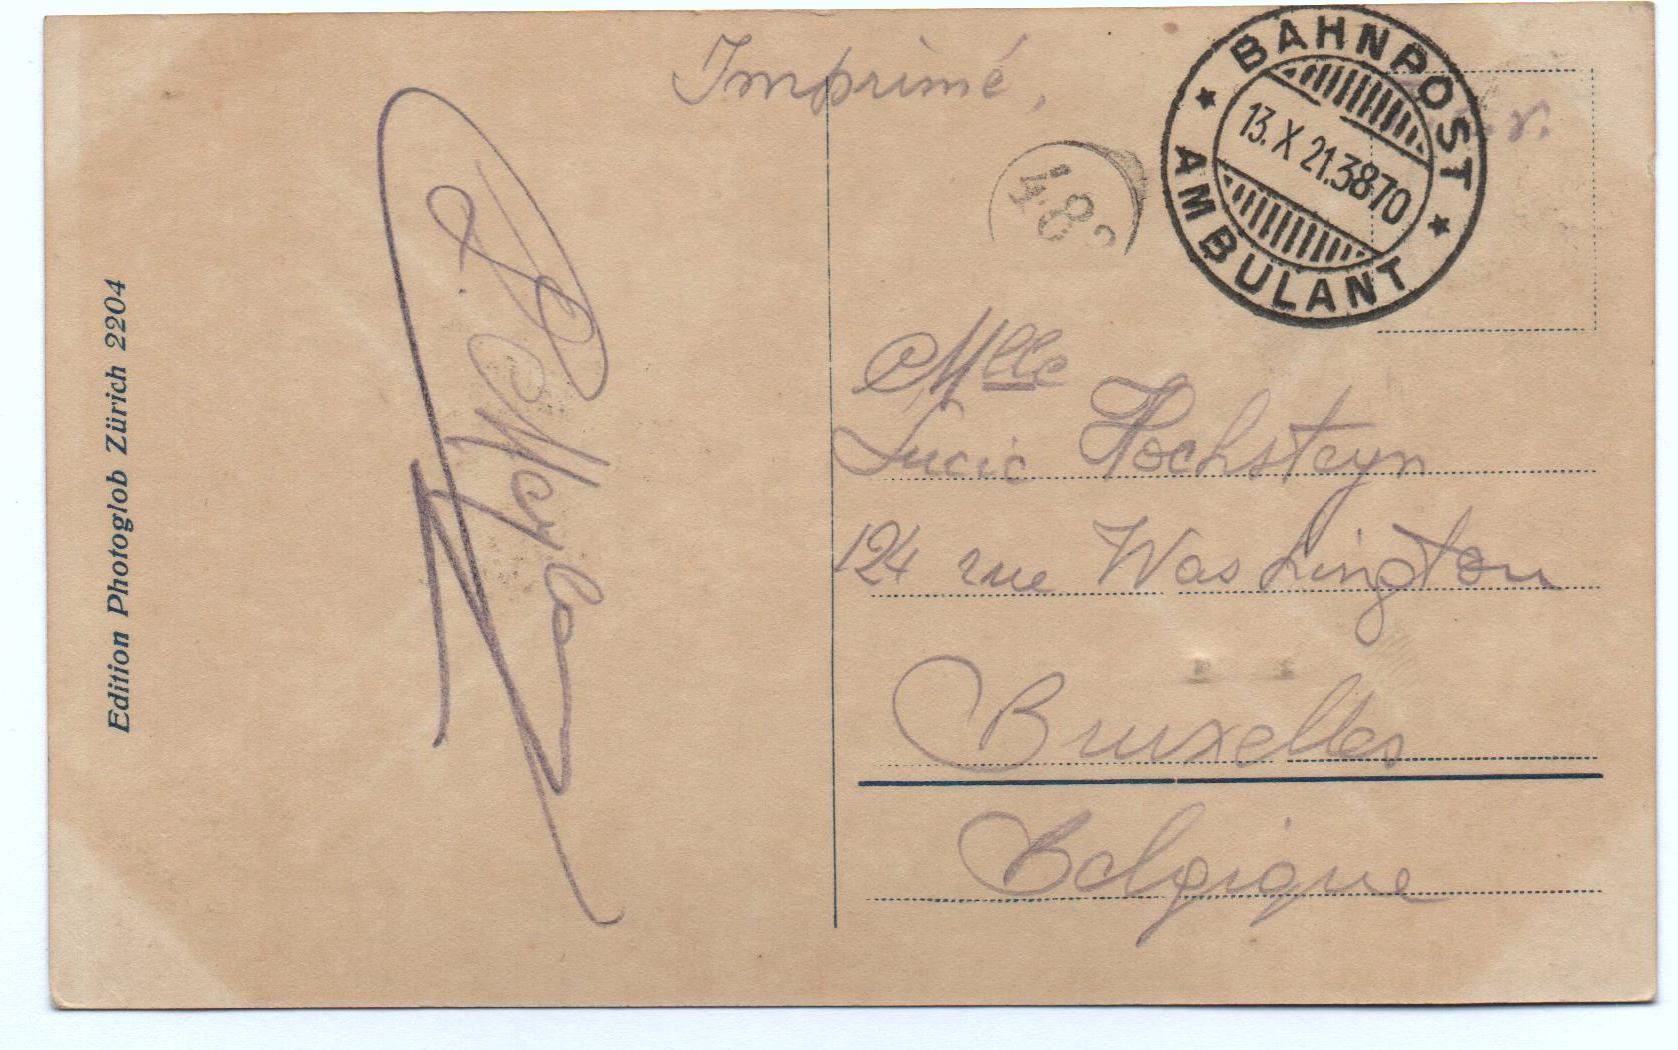 Imprimé,
BAHNPOST
13. X 21.3870
AMBULANT
48
Mlle
Lucie Hochsteyn
124 rue Washington
Bruxelles
Belgique
Edition Photoglob Zürich 2204